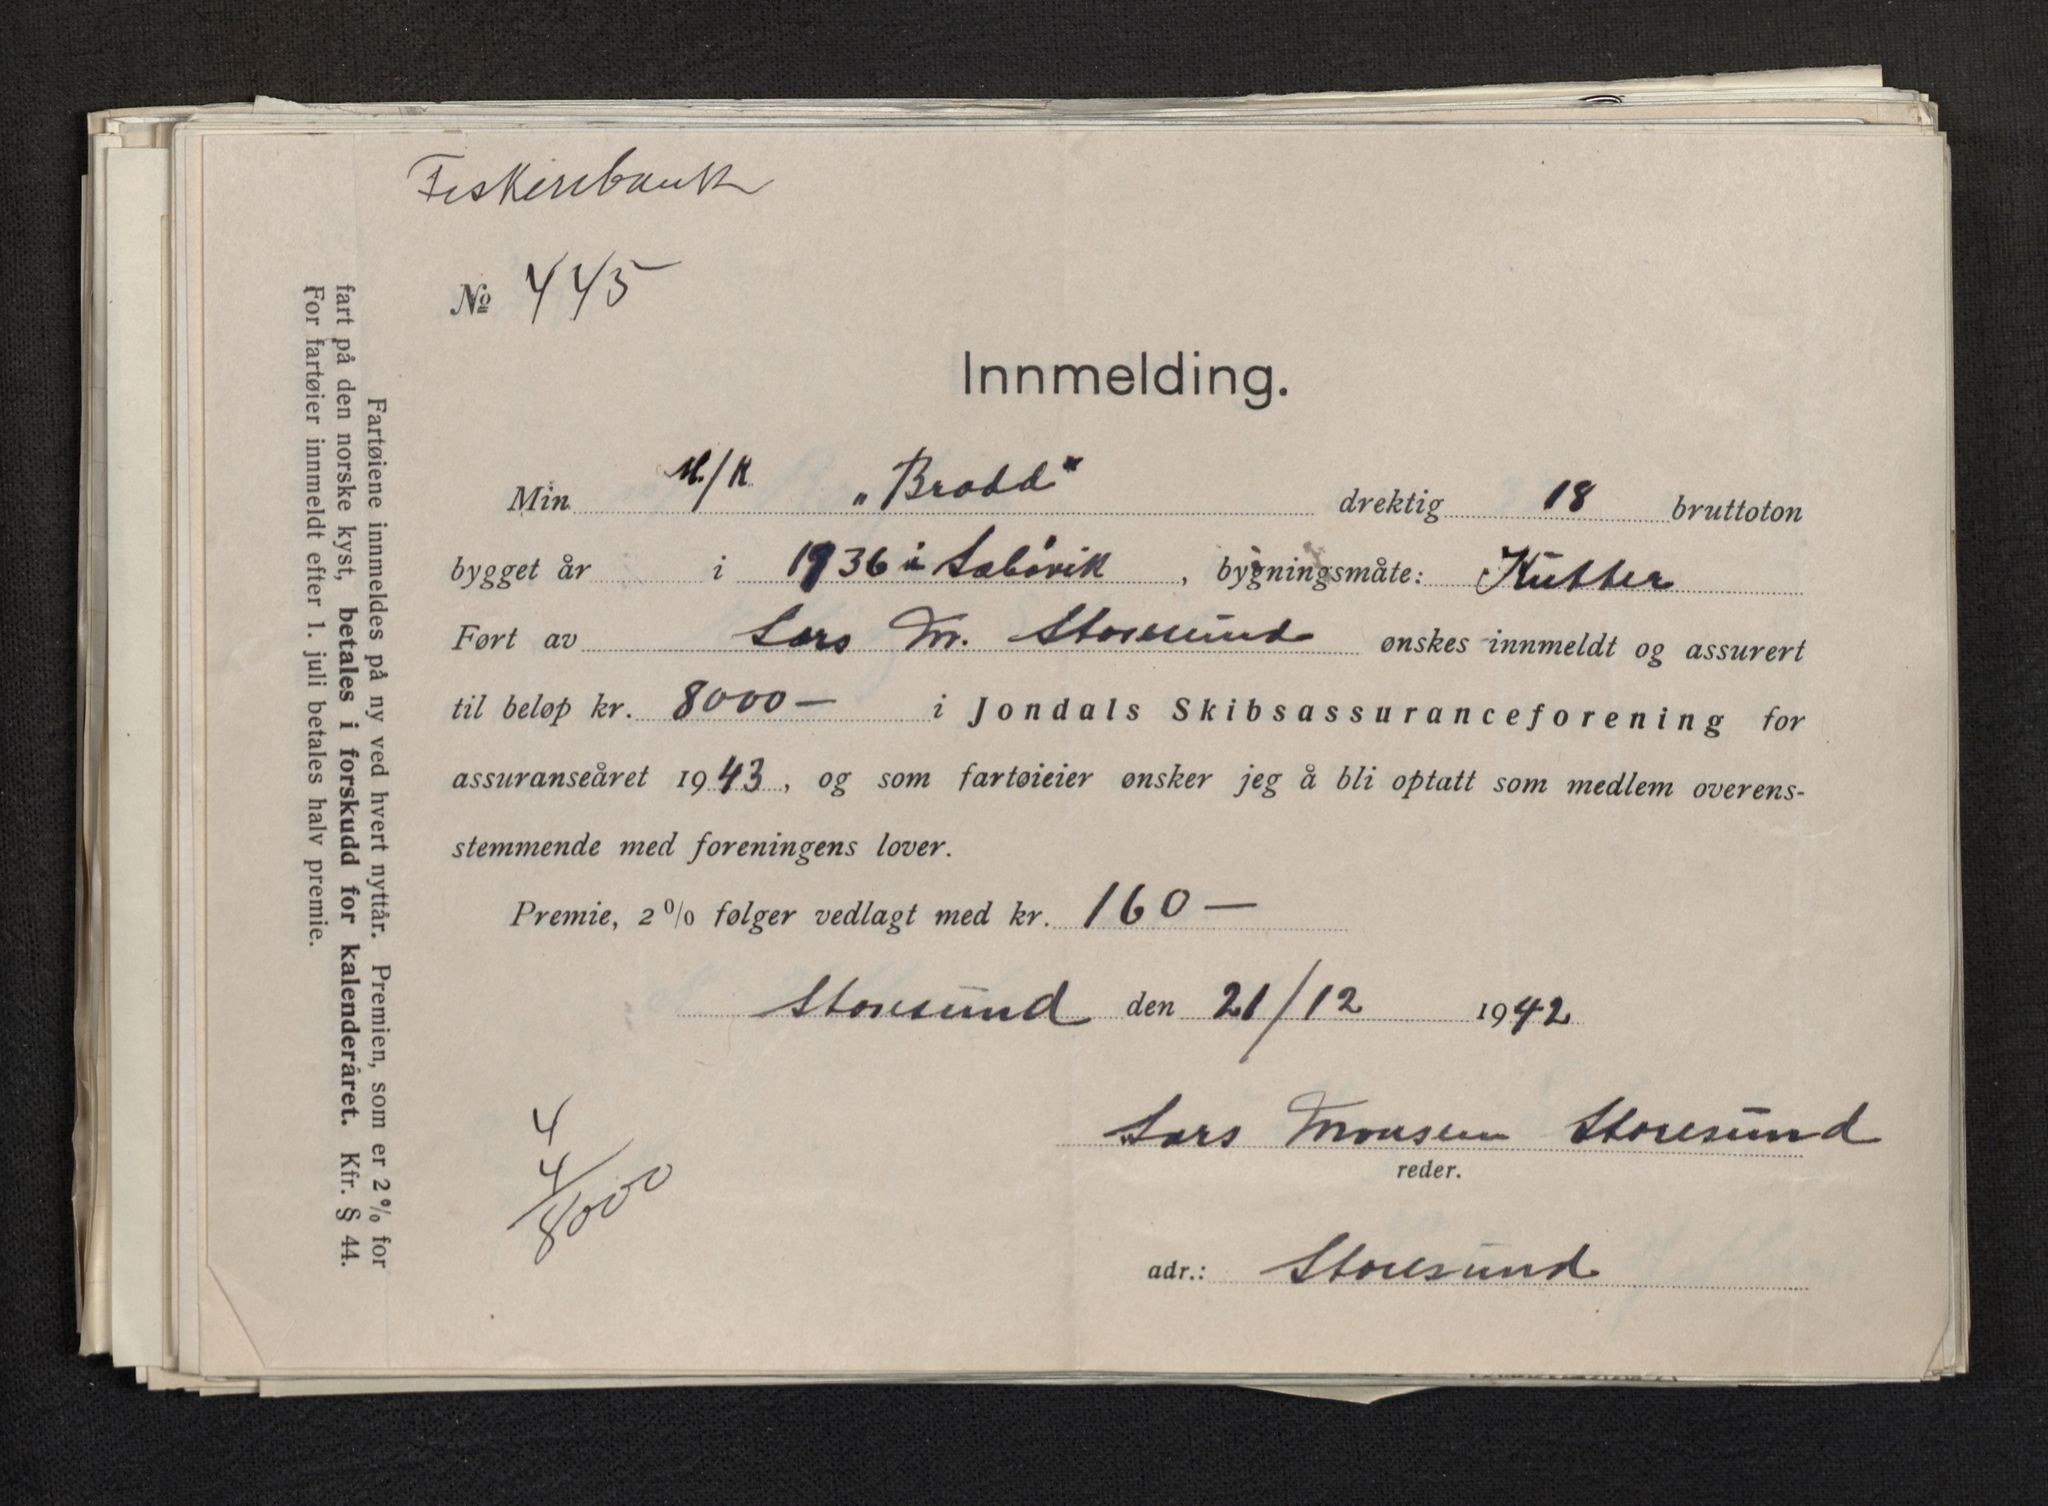 Fiskeribank
No 445
Innmelding.
Min M/K „Brodd" drektig 18 bruttoton
bygget år i 1936 i Sæbøvik, bygningsmåte: Kutter
Ført av Lars M. Storesund ønskes innmeldt og assurert
til beløp kr. 8000 — i Jondals Skibsassuranceforening for
assuranseåret 1943, og som fartøieier ønsker jeg å bli optatt som medlem overens-
stemmende med foreningens lover.
Premie, 2 % følger vedlagt med kr. 160 —
Storesund den 21/12 1942
Lars Monsen Storesund
reder.
adr.: Storesund
4
4/8000
Fartøiene innmeldes på ny ved hvert nyttår. Premien, som er 2 % for
fart på den norske kyst, betales i forskudd for kalenderåret. Kfr. § 44.
For fartøier innmeldt efter 1. juli betales halv premie.